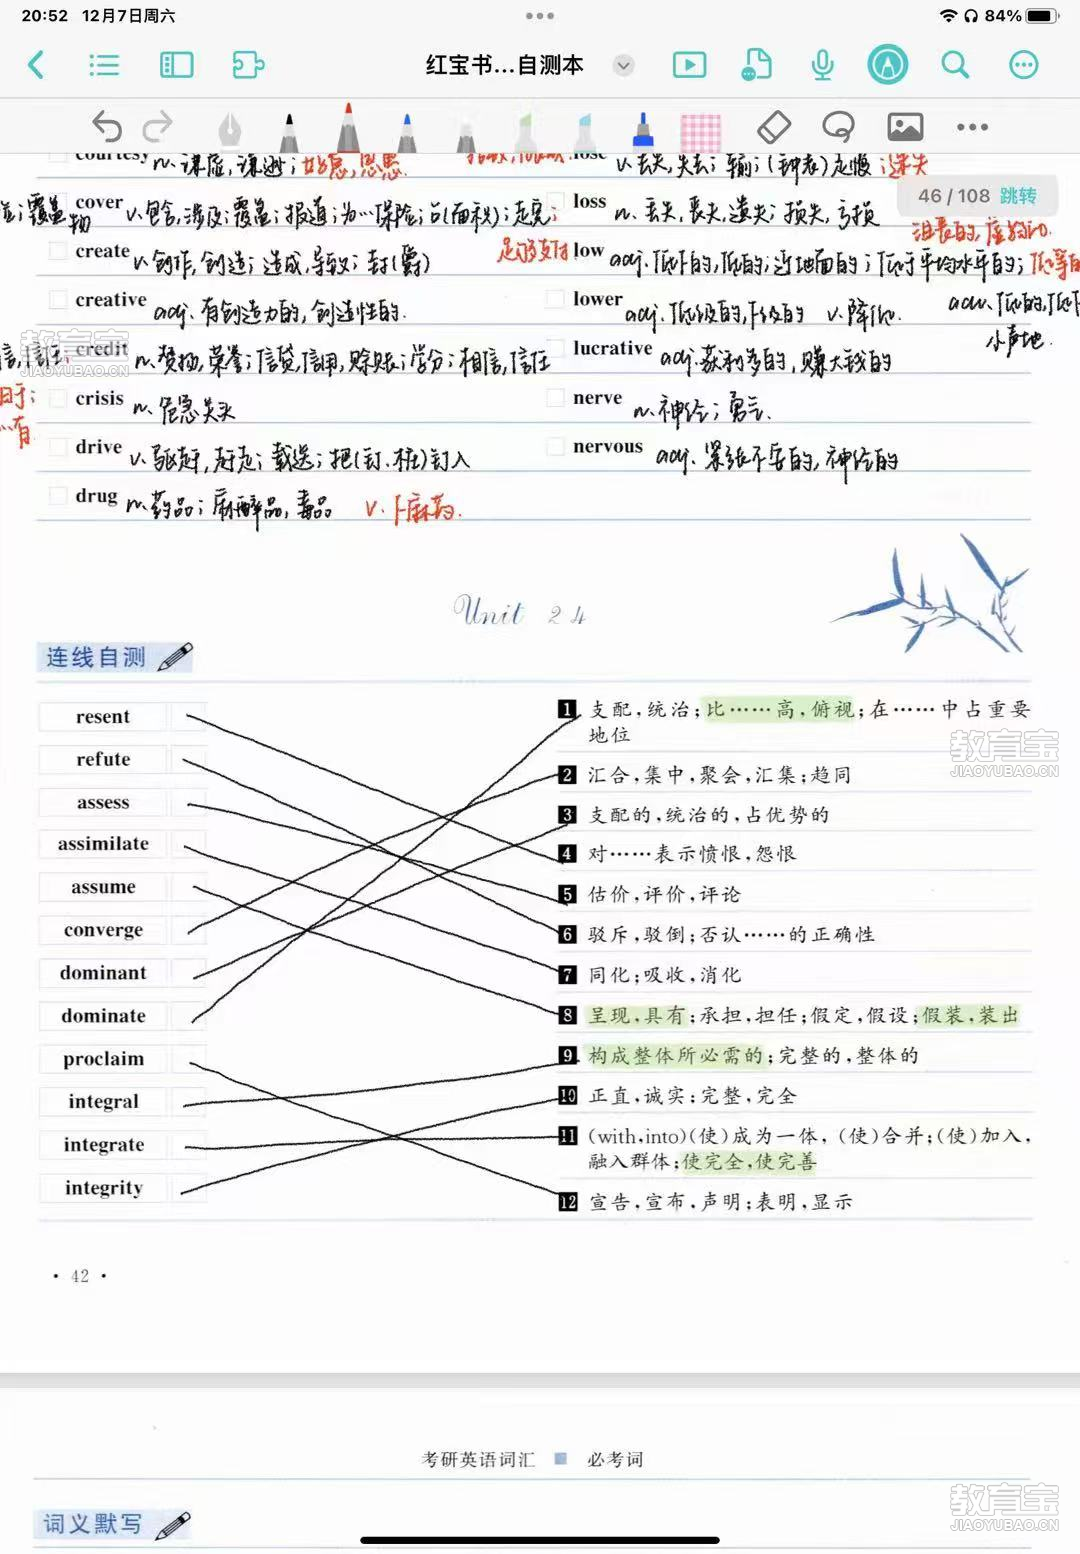 20:52 12月7日周六
84%
红宝书...自测本
46 / 108 跳转
courtesy n. 谦虚,谦逊;好意,恩惠.
lose v.丢失,失去;输;(钟表)走慢;迷失
cover v.包含,涉及;覆盖;报道;为…保险;占(面积);走完;
足够支付
loss n. 丢失,丧失,遗失;损失,亏损
沮丧的,
create v.创作,创造;造成,导致;封(爵)
low adj.低下的,低的;近地面的;低于平均水平的;低等的
creative adj.有创造力的,创造性的.
lower adj.低级的,下级的 v.降低.
adv.低的,低下
小声地.
credit n.赞扬,荣誉;信贷,信用,赊账;学分;相信,信任
lucrative adj.获利多的,赚大钱的
crisis n.危急关头
nerve n.神经;勇气.
drive v.驱赶,赶走;载送;把(钉、桩)钉入
nervous adj.紧张不安的,神经的
drug n.药品;麻醉品,毒品 v.下麻药.
Unit 24
连线自测
resent
refute
assess
assimilate
assume
converge
dominant
dominate
proclaim
integral
integrate
integrity
1 支配,统治;比……高,俯视;在……中占重要
地位
2 汇合,集中,聚会,汇集;趋同
3 支配的,统治的,占优势的
4 对……表示愤恨,怨恨
5 估价,评价,评论
6 驳斥,驳倒;否认……的正确性
7 同化;吸收,消化
8 呈现,具有;承担,担任;假定,假设;假装,装出
9 构成整体所必需的;完整的,整体的
10 正直,诚实;完整,完全
11 (with,into)(使)成为一体,(使)合并;(使)加入,
融入群体;使完全,使完善
12 宣告,宣布,声明;表明,显示
· 42 ·
考研英语词汇 必考词
词义默写
教育宝
JIAOYUBAO.CN
教育宝
JIAOYUBAO.CN
教育宝
JIAOYUBAO.CN